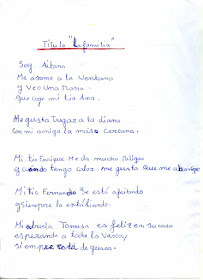 Título "La familia"
Soy Aitana
Me asomo a la ventana
y veo una mana
que coge mi tia Ana.
Me gusta jugar a la diana
con mi amiga la mas cercana.
Mi tio Enrique me da mucho
cuando tengo calor me gusta que me abanique
Mi tio Fernando se está afeitando
y siempre lo está liando.
Mi abuela Tomasa es feliz en su casa
esperando a toda la
siempre está de guasa.